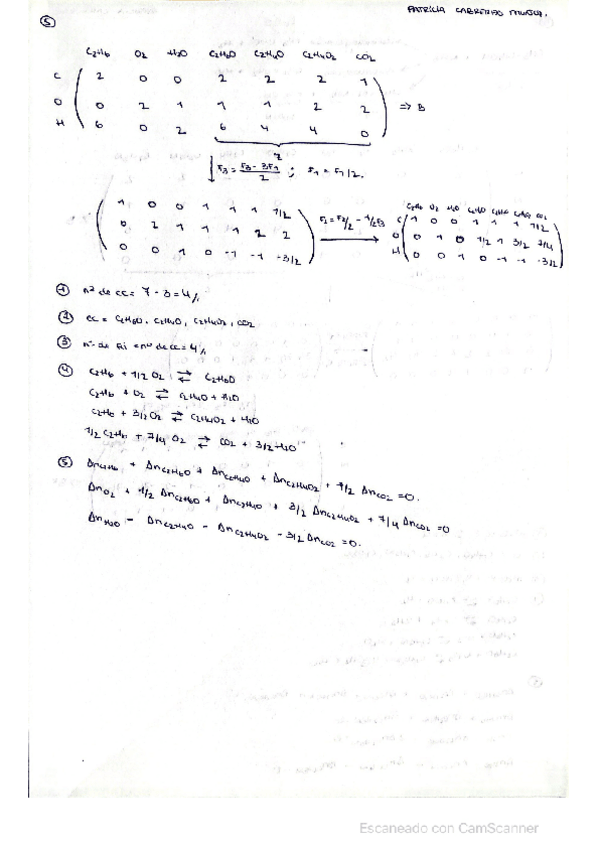 PATRICIA CABRERIZO
⑤
C2H6 O2 H2O C2H6O C2H4O C2H4O2 CO2
C 2 0 0 2 2 2 1
O 0 2 1 1 1 2 2 => B
H 6 0 2 6 4 4 0
F3 = F3 - 3F1 / 2 ; F1 = F1/2.
C2H6 O2 H2O C2H6O C2H4O C2H4O2 CO2
1 0 0 1 1 1 1/2 F2 = F2/2 - 1/2F3 C 1 0 0 1 1 1 1/2
0 2 1 1 1 2 2 O 0 1 0 1/2 1 3/2 7/4
0 0 1 0 -1 -1 -3/2 H 0 0 1 0 -1 -1 -3/2
① nº de cc = 7 - 3 = 4
② cc = C2H6O, C2H4O, C2H4O2, CO2
③ nº de Ri = nº de cc = 4
④ C2H6 + 1/2 O2 ⇄ C2H6O
C2H6 + O2 ⇄ C2H4O + H2O
C2H6 + 3/2 O2 ⇄ C2H4O2 + H2O
1/2 C2H6 + 7/4 O2 ⇄ CO2 + 3/2 H2O
⑤ ΔnC2H6 + ΔnC2H6O + ΔnC2H4O + ΔnC2H4O2 + 1/2 ΔnCO2 = 0.
ΔnO2 + 1/2 ΔnC2H6O + ΔnC2H4O + 3/2 ΔnC2H4O2 + 7/4 ΔnCO2 = 0
ΔnH2O - ΔnC2H4O - ΔnC2H4O2 - 3/2 ΔnCO2 = 0.
Escaneado con CamScanner